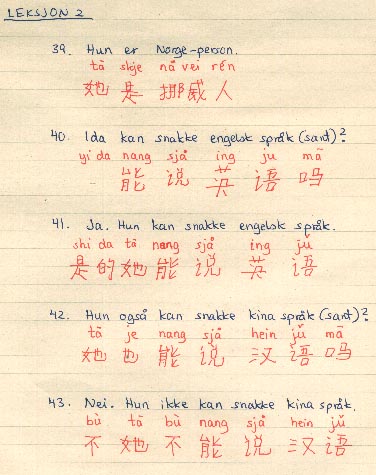 LEKSJON 2
39. Hun er Norge-person.
tā skje nå vei rén
她 是 挪威 人
40. Ida kan snakke engelsk språk (sant)?
yi da nang sjå ing ju mā
能 说 英 语 吗
41. Ja. Hun kan snakke engelsk språk.
shi da tā nang sjå ing jǔ
是 的 她 能 说 英 语
42. Hun også kan snakke kina språk (sant)?
tā je nang sjå hein jǔ mā
她 也 能 说 汉 语 吗
43. Nei. Hun ikke kan snakke kina språk.
bù tā bù nang sjå hein jǔ
不 她 不 能 说 汉 语